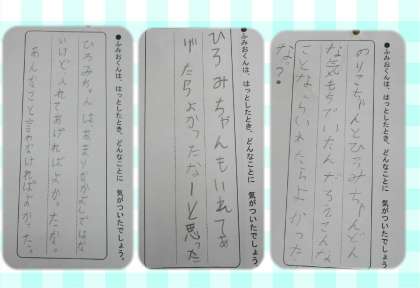 ●ふみおくんは、はっとしたとき、どんなことに 気がついたでしょう。
のりこちゃんとひろみちゃんどん
な気もちでいたんだろうそんな
ことならいれたらよかった
な?。
●ふみおくんは、はっとしたとき、どんなことに 気がついたでしょう。
ひろみちゃんもいれてあ
げたらよかったなーと思った
●ふみおくんは、はっとしたとき、どんなことに 気がついたでしょう。
ひろみちゃんはあまりなかよしではな
いけど入れてあげればよかったな。
あんなこと言わなければよかった。